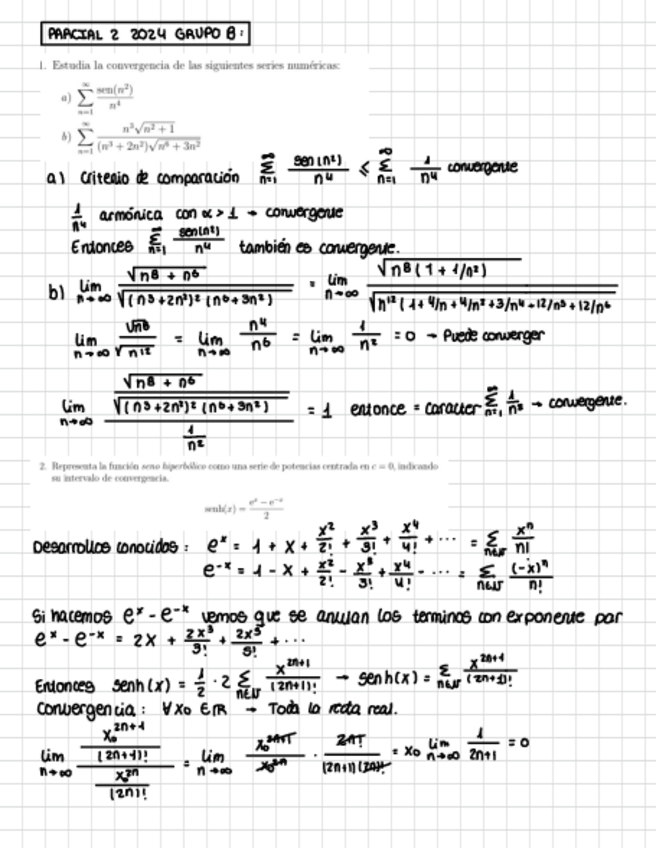 PARCIAL 2 2024 GRUPO B:
1. Estudia la convergencia de las siguientes series numéricas:
a) ∑_{n=1}^{∞} sen(n²)/n⁴
b) ∑_{n=1}^{∞} n³√(n²+1) / ((n³+2n²)√(n⁶+3n²))
a) Criterio de comparación ∑_{n=1}^{∞} sen(n²)/n⁴ ⩽ ∑_{n=1}^{∞} 1/n⁴ convergente
1/n⁴ armónica con α > 1 → convergente
Entonces ∑_{n=1} sen(n²)/n⁴ también es convergente.
b) lim_{n→∞} √(n⁸ + n⁶) / √((n³+2n²)² (n⁶+3n²)) = lim_{n→∞} √(n⁸(1 + 1/n²)) / √(n¹²(1+4/n+4/n²+3/n⁴+12/n⁵+12/n⁶
lim_{n→∞} √n⁸/√n¹² = lim_{n→∞} n⁴/n⁶ = lim_{n→∞} 1/n² = 0 → Puede converger
lim_{n→∞} (√(n⁸ + n⁶) / √((n³+2n²)² (n⁶+3n²))) / (1/n²) = 1 entonce = caracter ∑_{n=1}^{∞} 1/n² → convergente.
2. Representa la función seno hiperbólico como una serie de potencias centrada en c = 0, indicando
su intervalo de convergencia.
senh(x) = (eˣ − e⁻ˣ)/2
Desarrollos conocidos: eˣ = 1 + x + x²/2! + x³/3! + x⁴/4! + ··· = ∑_{n∈ℕ} xⁿ/n!
e⁻ˣ = 1 - x + x²/2! - x³/3! + x⁴/4! - ··· = ∑_{n∈ℕ} (-x)ⁿ/n!
Si hacemos eˣ - e⁻ˣ vemos que se anulan los terminos con exponente par
eˣ - e⁻ˣ = 2x + 2x³/3! + 2x⁵/5! + ···
Entonces senh(x) = 1/2 · 2 ∑_{n∈ℕ} x²ⁿ⁺¹/(2n+1)! → senh(x) = ∑_{n∈ℕ} x²ⁿ⁺¹/(2n+1)!
Convergencia: ∀x₀ ∈ ℝ → Toda la recta real.
lim_{n→∞} (x₀²ⁿ⁺¹/(2n+1)!) / (x₀²ⁿ/(2n)!) = lim_{n→∞} x₀²ⁿ⁺¹/x₀²ⁿ · 2n!/((2n+1)(2n)!) = x₀ lim_{n→∞} 1/(2n+1) = 0